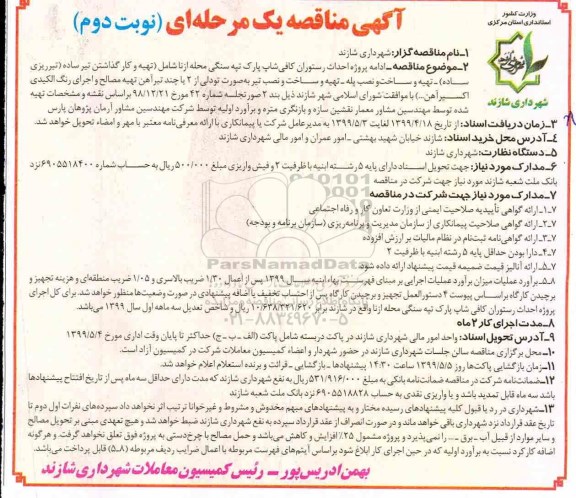 وزارت کشور
استانداری استان مرکزی
شهرداری شازند
آگهی مناقصه یک مرحله‌ای (نوبت دوم)
۱-نام مناقصه گزار: شهرداری شازند
۲-موضوع مناقصه-ادامه پروژه احداث رستوران کافی‌شاپ پارک تپه سنگی محله ازنا شامل (تهیه و کار گذاشتن تیر ساده (تیرریزی
ساده)-تهیه و ساخت و نصب پله-تهیه و ساخت و نصب تیر به‌صورت تودلی از ۲ یا چند تیرآهن تهیه مصالح و اجرای رنگ الکیدی
اکسیر آهن...) با موافقت شورای اسلامی شهر شازند ذیل بند ۲ صورتجلسه شماره ۴۲ مورخ ۹۸/۱۲/۲۱ براساس نقشه و مشخصات تهیه
شده توسط مهندسین مشاور معیار نقشین سازه و بازنگری متره و برآورد اولیه توسط شرکت مهندسین مشاور آرمان پژوهان پارس
۳-زمان دریافت اسناد: از تاریخ ۱۳۹۹/۴/۱۸ لغایت ۱۳۹۹/۵/۳ به مدیرعامل شرکت یا پیمانکاری با ارائه معرفی‌نامه معتبر با مهر و امضاء تحویل خواهد شد.
۴-آدرس محل خرید اسناد: شازند خیابان شهید بهشتی-امور عمران و امور مالی شهرداری شازند
۵-دستگاه نظارت: شهرداری شازند
۶-مدارک مورد نیاز: جهت تحویل اسناد دارای پایه ۵ رشته ابنیه با ظرفیت ۲ و فیش واریزی مبلغ ۵۰۰/۰۰۰ ریال به حساب شماره ۶۹۰۵۵۱۸۴۰۰ نزد
بانک ملت شعبه شازند مورد نیاز جهت شرکت در مناقصه
۷-مدارک مورد نیاز جهت شرکت در مناقصه
۷-۱-ارائه گواهی تأییدیه صلاحیت ایمنی از وزارت تعاون کار و رفاه اجتماعی
۷-۲-ارائه گواهی صلاحیت پیمانکاری از سازمان مدیریت و برنامه‌ریزی (سازمان برنامه و بودجه)
۷-۳-ارائه گواهی‌نامه ثبت‌نام در نظام مالیات بر ارزش افزوده
۷-۴-دارا بودن حداقل پایه ۵ رشته ابنیه با ظرفیت ۲
۷-۵-ارائه آنالیز قیمت ضمیمه قیمت پیشنهاد ارائه داده شود.
۵-۸-برآورد عملیات میزان برآورد عملیات اجرایی بر مبنای فهرست بهاء ابنیه سال ۱۳۹۹ پس از اعمال ۱/۳۰ ضریب بالاسری و ۱/۰۵ ضریب منطقه‌ای و هزینه تجهیز و
برچیدن کارگاه براساس پیوست ۴ دستورالعمل تجهیز و برچیدن کارگاه پس از احتساب تخفیف یا اضافه پیشنهادی در صورت وضعیت‌ها منظور خواهد شد. برای کل اجرای
پروژه احداث رستوران کافی شاپ پارک تپه سنگی محله ازنا واقع در شازند برابر ۱۰/۶۳۸/۳۲۱/۶۲۰ ریال و شاخص تعدیل سه ماهه اول سال ۱۳۹۹ می‌باشد.
۸-مدت اجرای کار ۲ ماه
۹-آدرس تحویل اسناد: واحد امور مالی شهرداری شازند در پاکت دربسته شامل پاکت (الف-ب-ج) حداکثر تا پایان وقت اداری مورخ ۱۳۹۹/۵/۴
۱۰-محل برگزاری مناقصه سالن جلسات شهرداری شازند در حضور شهردار و اعضاء کمیسیون معاملات شرکت در کمیسیون آزاد است.
۱۱-زمان بازگشایی پاکت‌ها روز ۱۳۹۹/۵/۵ ساعت ۱۴:۳۰ پیشنهادها-بازگشایی-قرائت و برنده استعلام اعلام خواهد شد.
۱۲-ضمانت‌نامه شرکت در مناقصه ضمانت‌نامه بانکی به مبلغ ۵۳۱/۹۱۶/۰۰۰ ریال به نفع شهرداری شازند که مدت دارای حداقل سه ماه پس از تاریخ افتتاح پیشنهادها
باشد سه ماه قابل تمدید باشد و یا واریزی نقدی به حساب ۶۹۰۵۵۱۸۸۲۸ نزد بانک ملت شعبه شازند
۱۳-شهرداری در رد یا قبول کلیه پیشنهادهای رسیده مختار و به پیشنهادهای مبهم مخدوش و مشروط و غیرخوانا ترتیب اثر نخواهد داد سپرده‌های نفرات اول دوم تا
تاریخ عقد قرارداد نزد شهرداری باقی خواهد ماند و در صورت انصراف از عقد قرارداد سپرده به نفع شهرداری شازند ضبط خواهد شد و هیچ تعهدی مبنی بر تحویل مصالح
و سایر موارد از قبیل آب-برق-... را نمی‌پذیرد و پروژه مشمول ۲۵٪ افزایش و کاهش می‌باشد و حمل مصالح با چرخ‌دستی به پروژه فوق تعلق نخواهد گرفت. و هرگونه
اضافه کار کرد نسبت به برآورد اولیه که در حین اجرای کار ابلاغ شود براساس آیتم‌های فهرست مربوطه با اعمال ضرایب ردیف مربوطه (۵-۸) قابل پرداخت می‌باشد.
بهمن ادریس‌پور-رئیس کمیسیون معاملات شهرداری شازند
ParsNamadData
۰۲۱-۸۸۳۴۹۶۷۰-۵